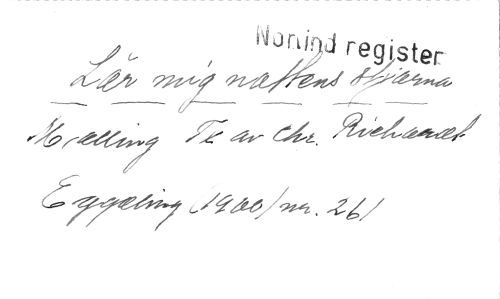 Nonind register
Lär mig nattens stjärna
Malling Tx av Chr. Richardt
Eggeling (1900/nr. 26/